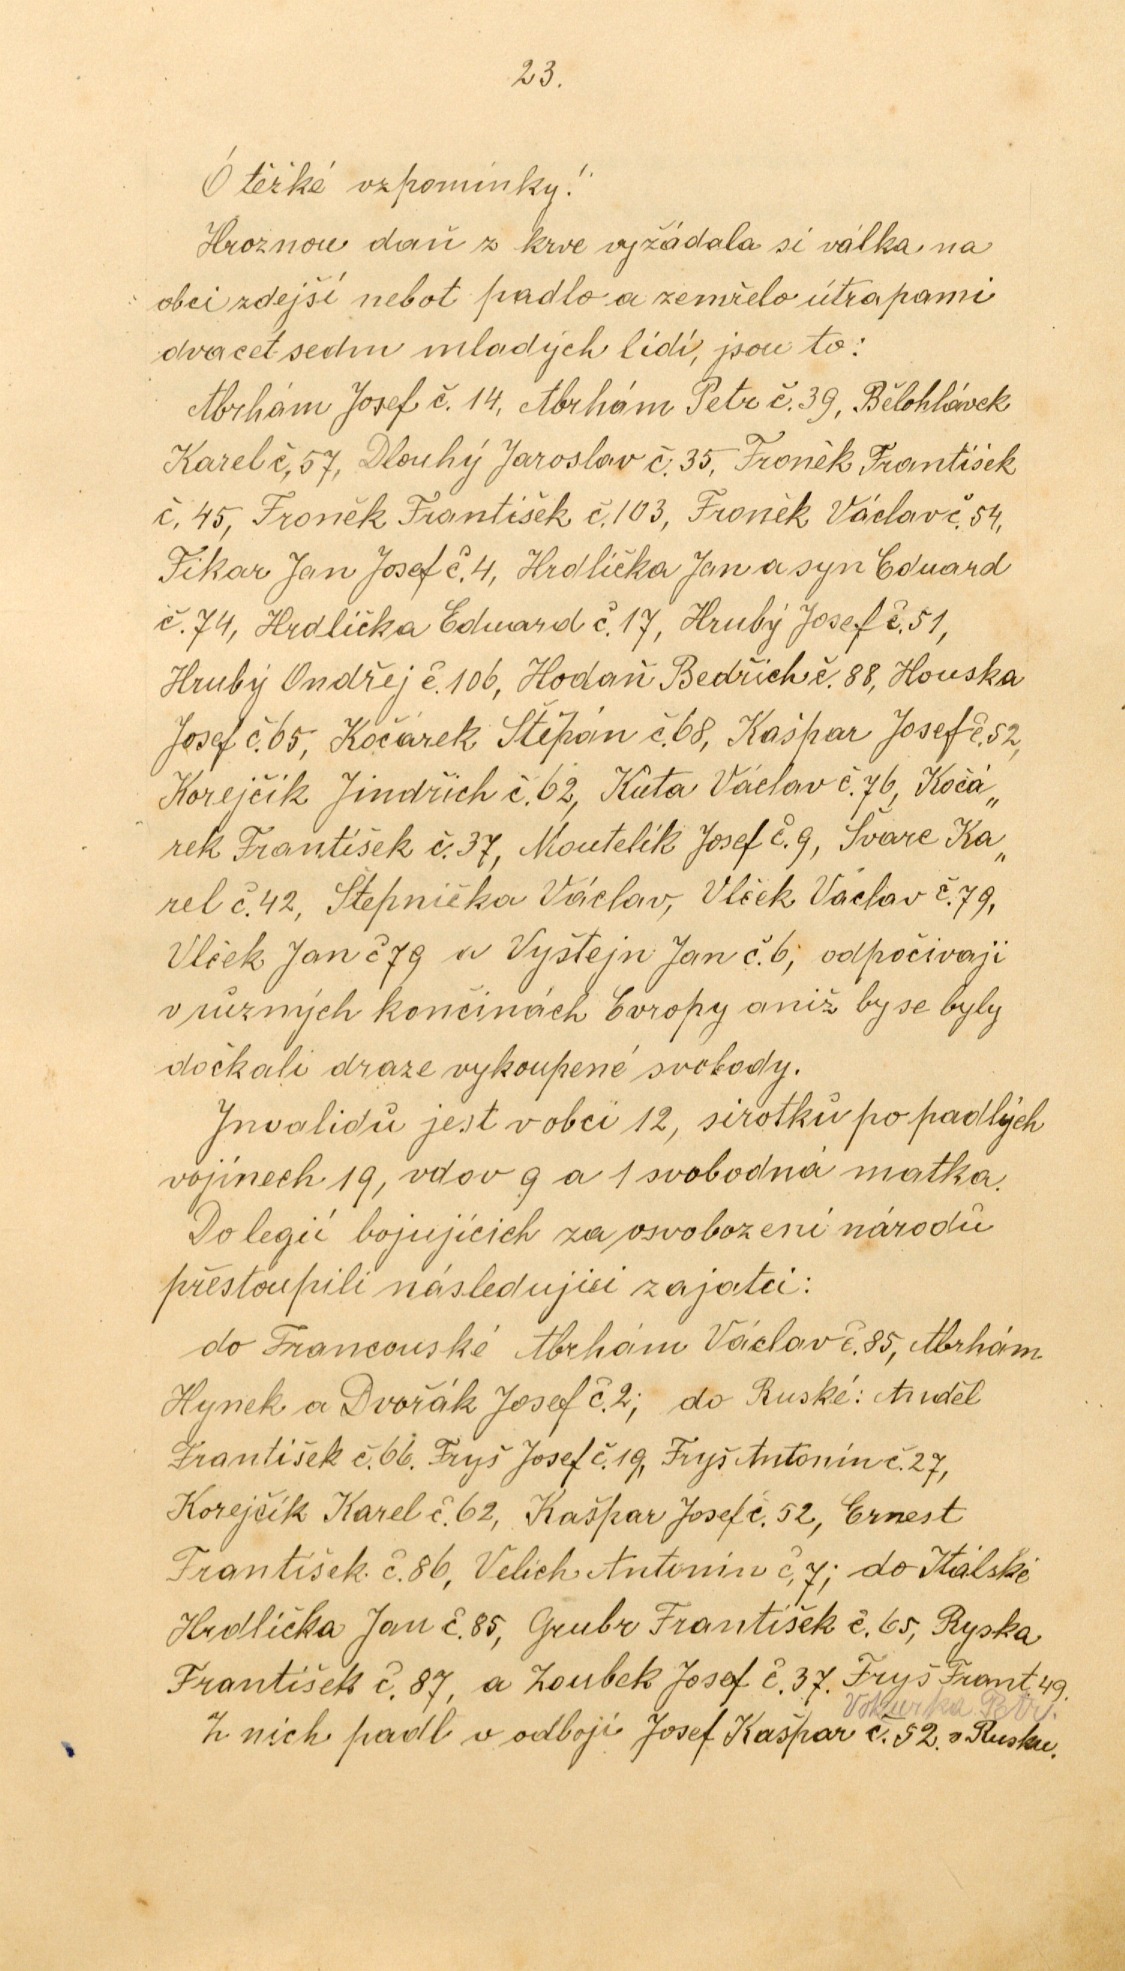 23.
Ó těžké vzpomínky!"
Hroznou daň z krve vyžádala si válka na
obci zdejší nebot padlo a zemřelo útrapami
dvacet sedm mladých lidí, jsou to:
Abrhám Josef č. 14, Abrhám Petr č. 39, Bělohlávek
Karel č. 57, Dlouhý Jaroslav č. 35, Froněk František
č. 45, Froněk František č. 103, Froněk Václav č. 54,
Fikar Jan Josef č. 4, Hrdlička Jan a syn Eduard
č. 74, Hrdlička Eduard č. 17, Hrubý Josef č. 51,
Hrubý Ondřej č. 106, Hodaň Bedřich č. 88, Houska
Josef č. 65, Kočárek Štěpán č. 68, Kašpar Josef č. 52,
Korejčík Jindřich č. 62, Kůta Václav č. 76, Kočá„
rek František č. 37, Moutelík Josef č. 9, Švarc Ka„
rel č. 42, Štěpnička Václav, Vlček Václav č. 79,
Vlček Jan č 79 a Vyštejn Jan č. 6; odpočívají
v různých končinách Evropy aniž by se byly
dočkali draze vykoupené svobody.
Invalidů jest v obci 12, sirotků po padlých
vojínech 19, vdov 9 a 1 svobodná matka.
Do legií bojujících za osvobození národů
přestoupili následující zajatci:
do Francouské Abrhám Václav č. 85, Abrhám
Hynek a Dvořák Josef č. 2; do Ruské: Anděl
František č. 66. Fryš Josef č. 19, Fryš Antonín č. 27,
Korejčík Karel č. 62, Kašpar Josef č. 52, Ernest
František č. 86, Velich Antonín č. 7; do Italské
Hrdlička Jan č. 85, Grubr František č. 65, Ryska
František č. 87, a Zoubek Josef č. 37. Fryš Frant 49.
Vokurka Petr.
Z nich padl v odboji Josef Kašpar č. 52. v Rusku.